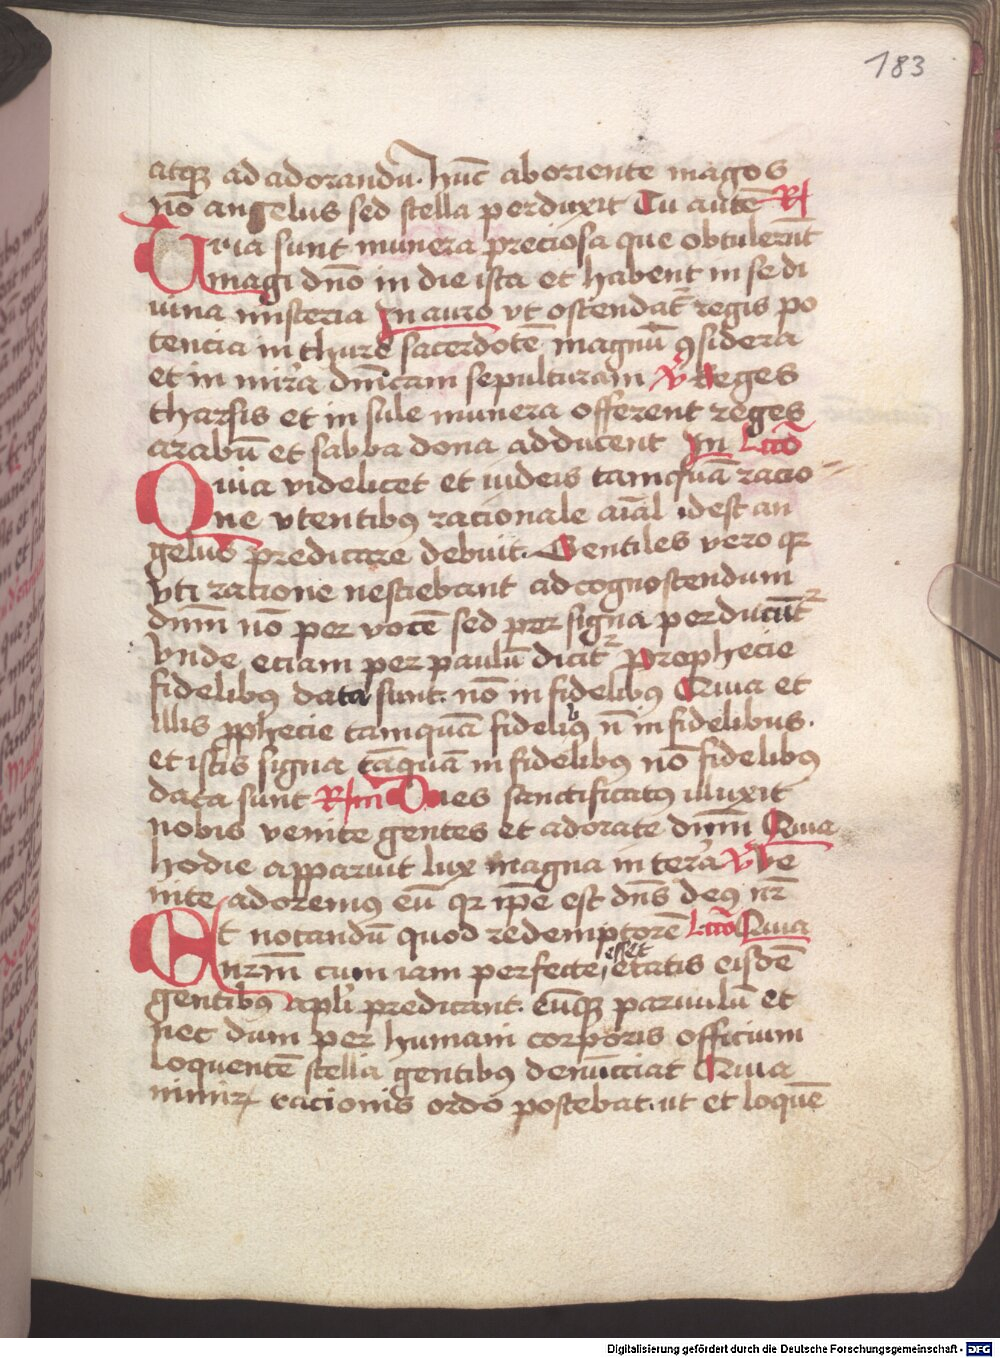 183
atqꝫ ad adorandū. hūc ab oriente magos
nō angelus sed stella perduxit Tu autē R/
Tria sunt munera preciosa que obtulerūt
magi dn̄o in die ista et habent in se di
uina misteria In auro vt ostendat̄ regis po
tencia in thure sacerdotē magnū ꝯsidera
et in mirra dn̄icam sepulturam V Reges
tharsis et in sule munera offerent reges
arabū et sabba dona adducent In Lccō
Quia videlicet et iudeis tamquā racio
ne vtentibꝰ racionale aīal idest an
gelus predicare debuit. Gentiles vero qr
vti ratione nesciebant ad cognoscendum
dn̄m nō per vocē sed per signa perducūtᷣ
Vnde etiam per paulū dicitᷣ prophecie
fidelibꝰ data sunt. nō in fidelibꝰ Quia et
illis ꝓphecie tamquā fidelibꝰ n̄ in fidelibus.
et istis signa tāquā in fidelibꝰ nō fidelibꝰ
data sunt R/m Dies sanctificatꝰ illuxit
nobis venite gentes et adorate dn̄m Quia
hodie apparuit lux magna in terra V Ve
nite adoremꝰ eū qr ip̄e est dn̄s deꝰ nr̄
Et notandū quod redemptorē Lccō Quia
nr̄m cum iam perfecte esset etatis eisdē
gentibꝰ apl̄i predicant. eūqꝫ paruulū et
nec dum per humani corporis officium
loquentē stella gentibꝰ denūcciat Quia
nimiꝝ racionis ordo poscebat. ut et loquē
Digitalisierung gefördert durch die Deutsche Forschungsgemeinschaft - DFG